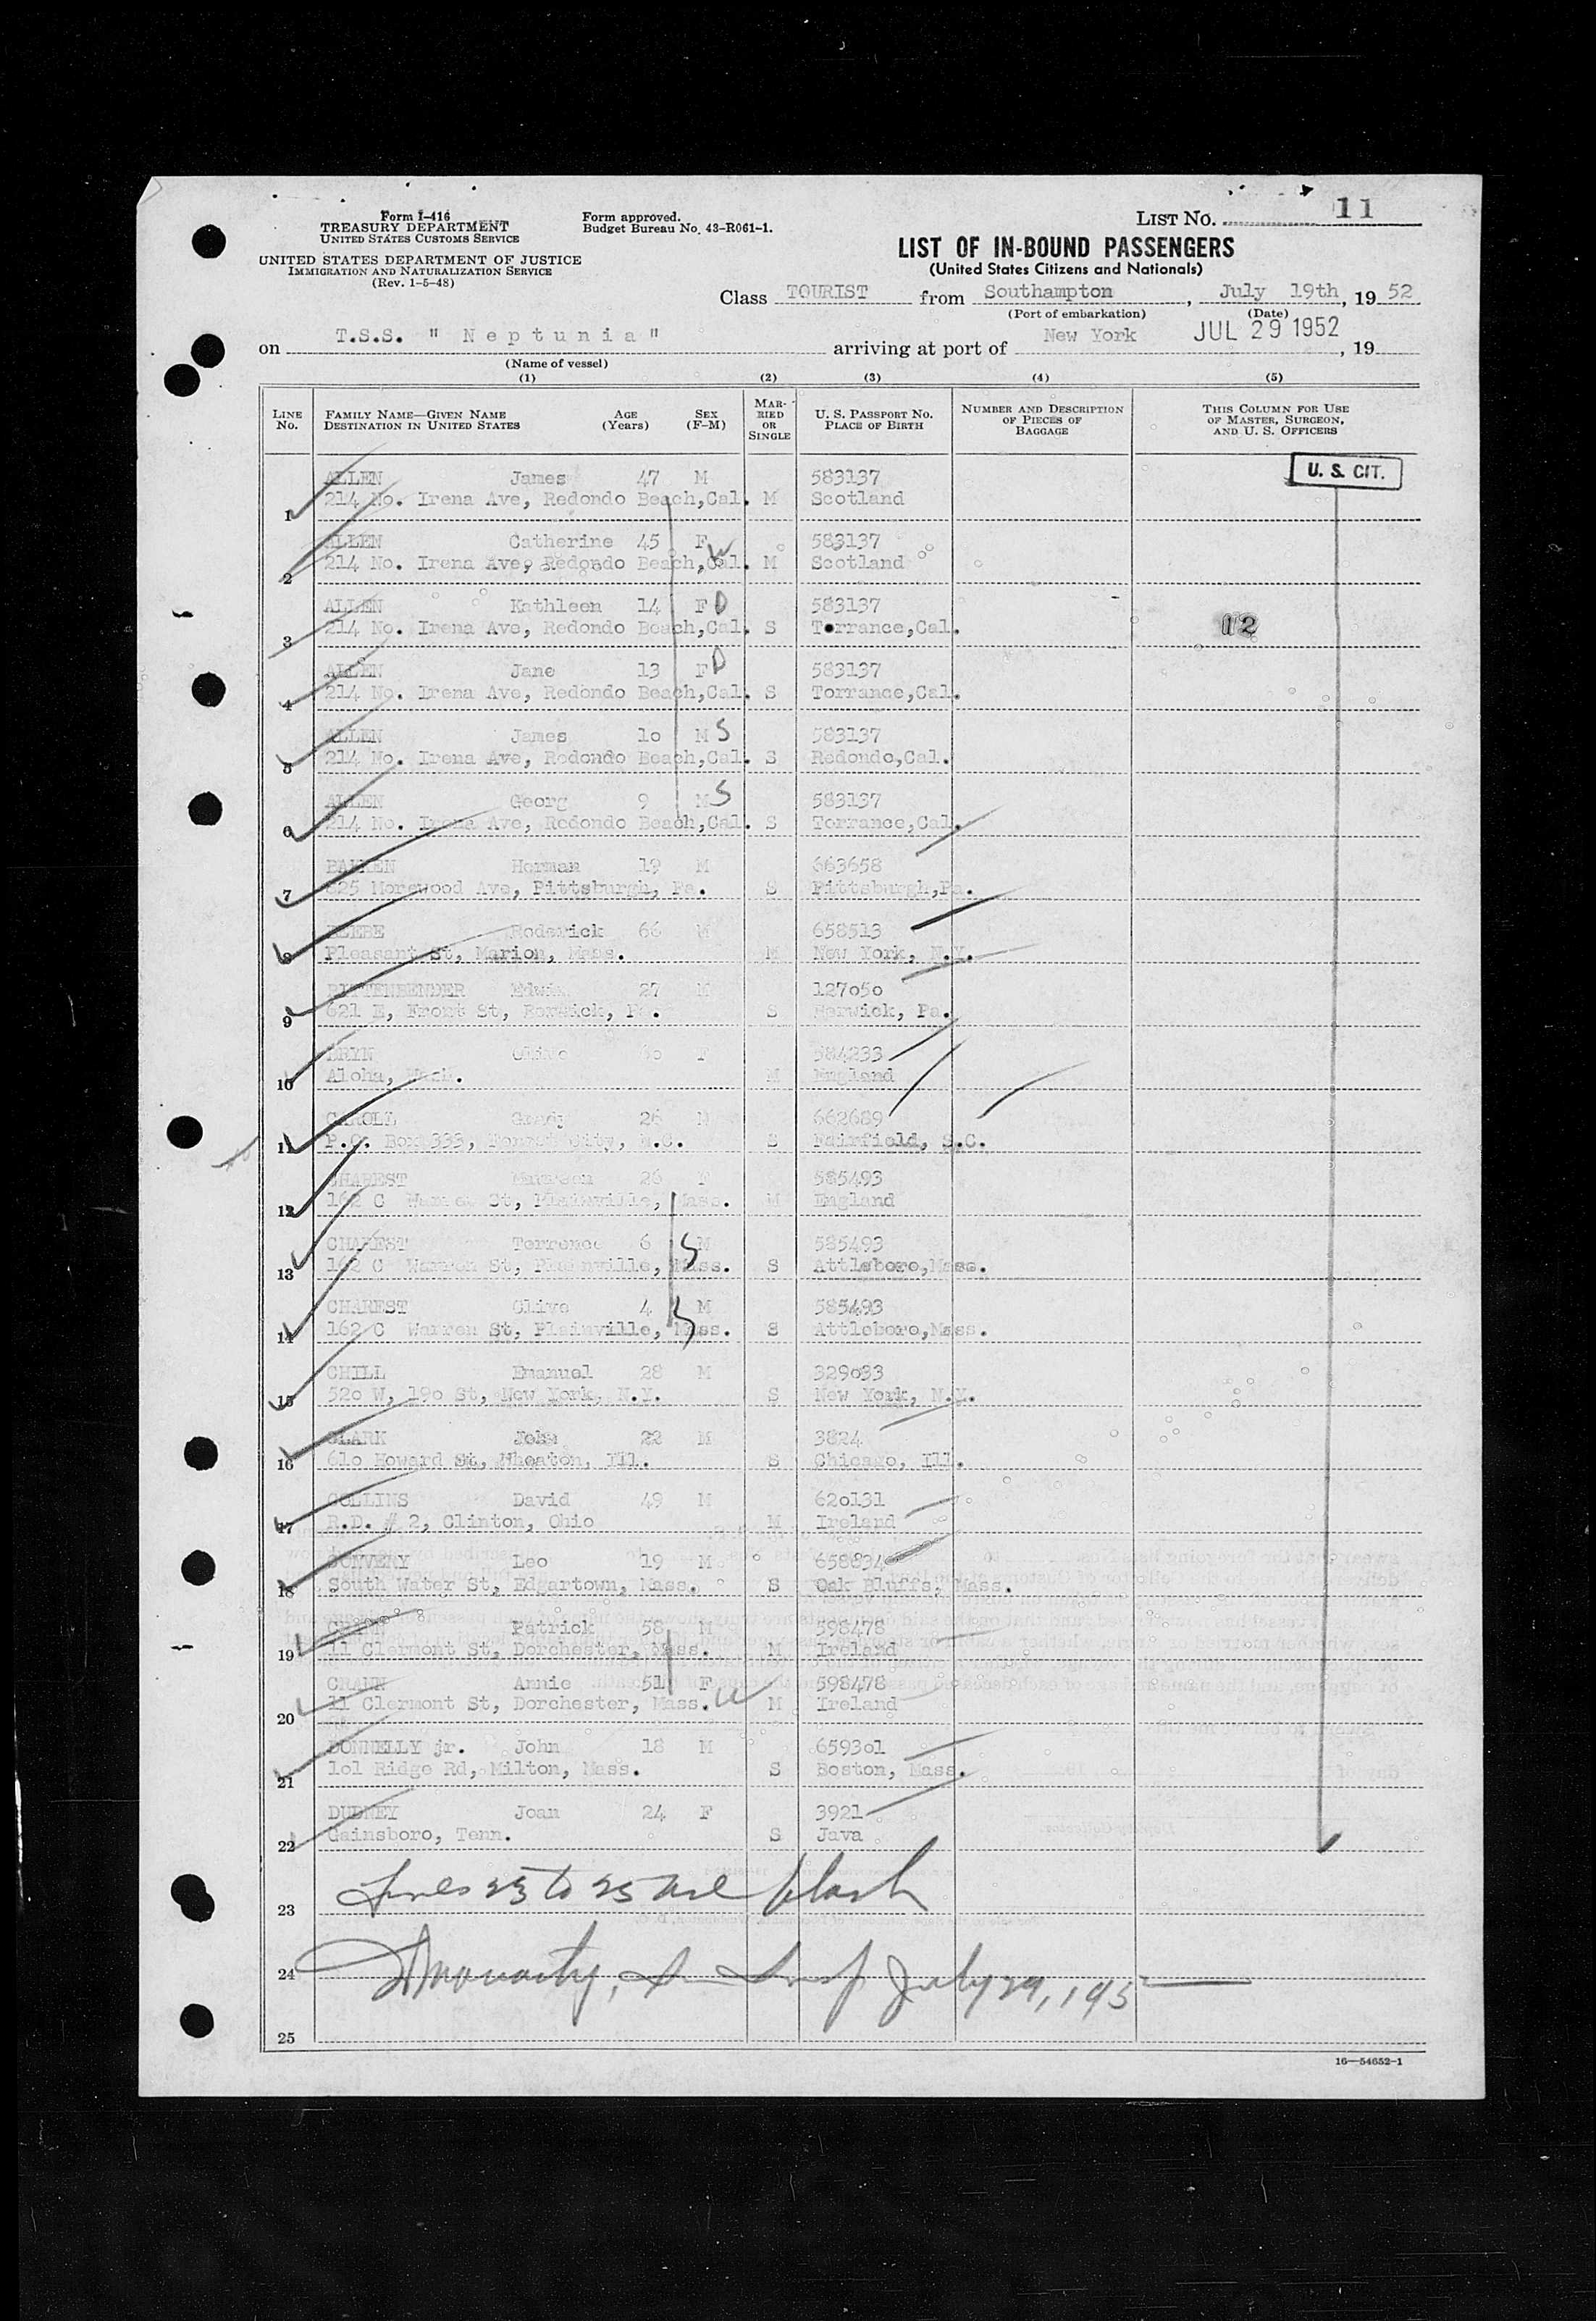 Form I-416
TREASURY DEPARTMENT
UNITED STATES CUSTOMS SERVICE
UNITED STATES DEPARTMENT OF JUSTICE
IMMIGRATION AND NATURALIZATION SERVICE
(Rev. 1-5-48)
Form approved.
Budget Bureau No. 43-R061-1.
LIST NO. 11
LIST OF IN-BOUND PASSENGERS
(United States Citizens and Nationals)
Class TOURIST from Southampton, July 19th, 19 52
(Port of embarkation) (Date)
on T.S.S. " N e p t u n i a " arriving at port of New York JUL 29 1952, 19
(Name of vessel)
(1) (2) (3) (4) (5)
LINE NO. FAMILY NAME—GIVEN NAME DESTINATION IN UNITED STATES AGE (Years) SEX (F-M) MARRIED OR SINGLE U. S. PASSPORT NO. PLACE OF BIRTH NUMBER AND DESCRIPTION OF PIECES OF BAGGAGE THIS COLUMN FOR USE OF MASTER, SURGEON, AND U. S. OFFICERS
U. S. CIT.
ALLEN James 47 M 583137
1 214 No. Irena Ave, Redondo Beach,Cal. M Scotland
ALLEN Catherine 45 F W 583137
2 214 No. Irena Ave, Redondo Beach,Cal. M Scotland
ALLEN Kathleen 14 F D 583137
3 214 No. Irena Ave, Redondo Beach,Cal. S Torrance,Cal. 12
ALLEN Jane 13 F D 583137
4 214 No. Irena Ave, Redondo Beach,Cal. S Torrance,Cal.
ALLEN James 1o M S 583137
5 214 No. Irena Ave, Redondo Beach,Cal. S Redondo,Cal.
ALLEN Georg 9 M S 583137
6 214 No. Irena Ave, Redondo Beach,Cal. S Torrance,Cal.
Herman 19 M 663658
7 825 Morewood Ave, Pittsburgh, Pa. S Pittsburgh,Pa.
Roderick 66 M 658513
8 Pleasant St, Marion, Mass. M New York, N.Y.
BITTENBENDER Edwin 27 M 127o5o
9 621 E, Front St, Berwick, Pa. S Berwick, Pa.
BRYN Olive F 584233
10 Aloha, Wash. M England
CAROLL Grady 26 M 662689
11 P.O. Box 333, City, N.C. S Fairfield, S.C.
CHAREST 26 F 585493
12 162 C Warren St, Plainville, Mass. M England
CHAREST Terrence 6 S M 585493
13 162 C Warren St, Plainville, Mass. S Attleboro,Mass.
CHAREST Clive 4 S M 585493
14 162 C Warren St, Plainville, Mass. S Attleboro,Mass.
CHILL Emanuel 28 M 329o33
15 52o W, 19o St, New York, N.Y. S New York, N.Y.
CLARK John 22 M 3824
16 61o Howard St, Wheaton, Ill. S Chicago, Ill.
COLLINS David 49 M 62o131
17 R.D. # 2, Clinton, Ohio M Ireland
CONVERY Leo 19 M 658834
18 South Water St, Edgartown, Mass. S Oak Bluffs, Mass.
Patrick 58 M 598478
19 11 Clermont St, Dorchester, Mass. M Ireland
Annie 51 F W 598478
20 11 Clermont St, Dorchester, Mass. M Ireland
DONNELLY jr. John 18 M 6593o1
21 1o1 Ridge Rd, Milton, Mass. S Boston, Mass.
DUDNEY Joan 24 F 3921
22 Gainsboro, Tenn. S Java
23 Lines 23 to 25 are blank
24 July 29, 195
25
16—54652-1